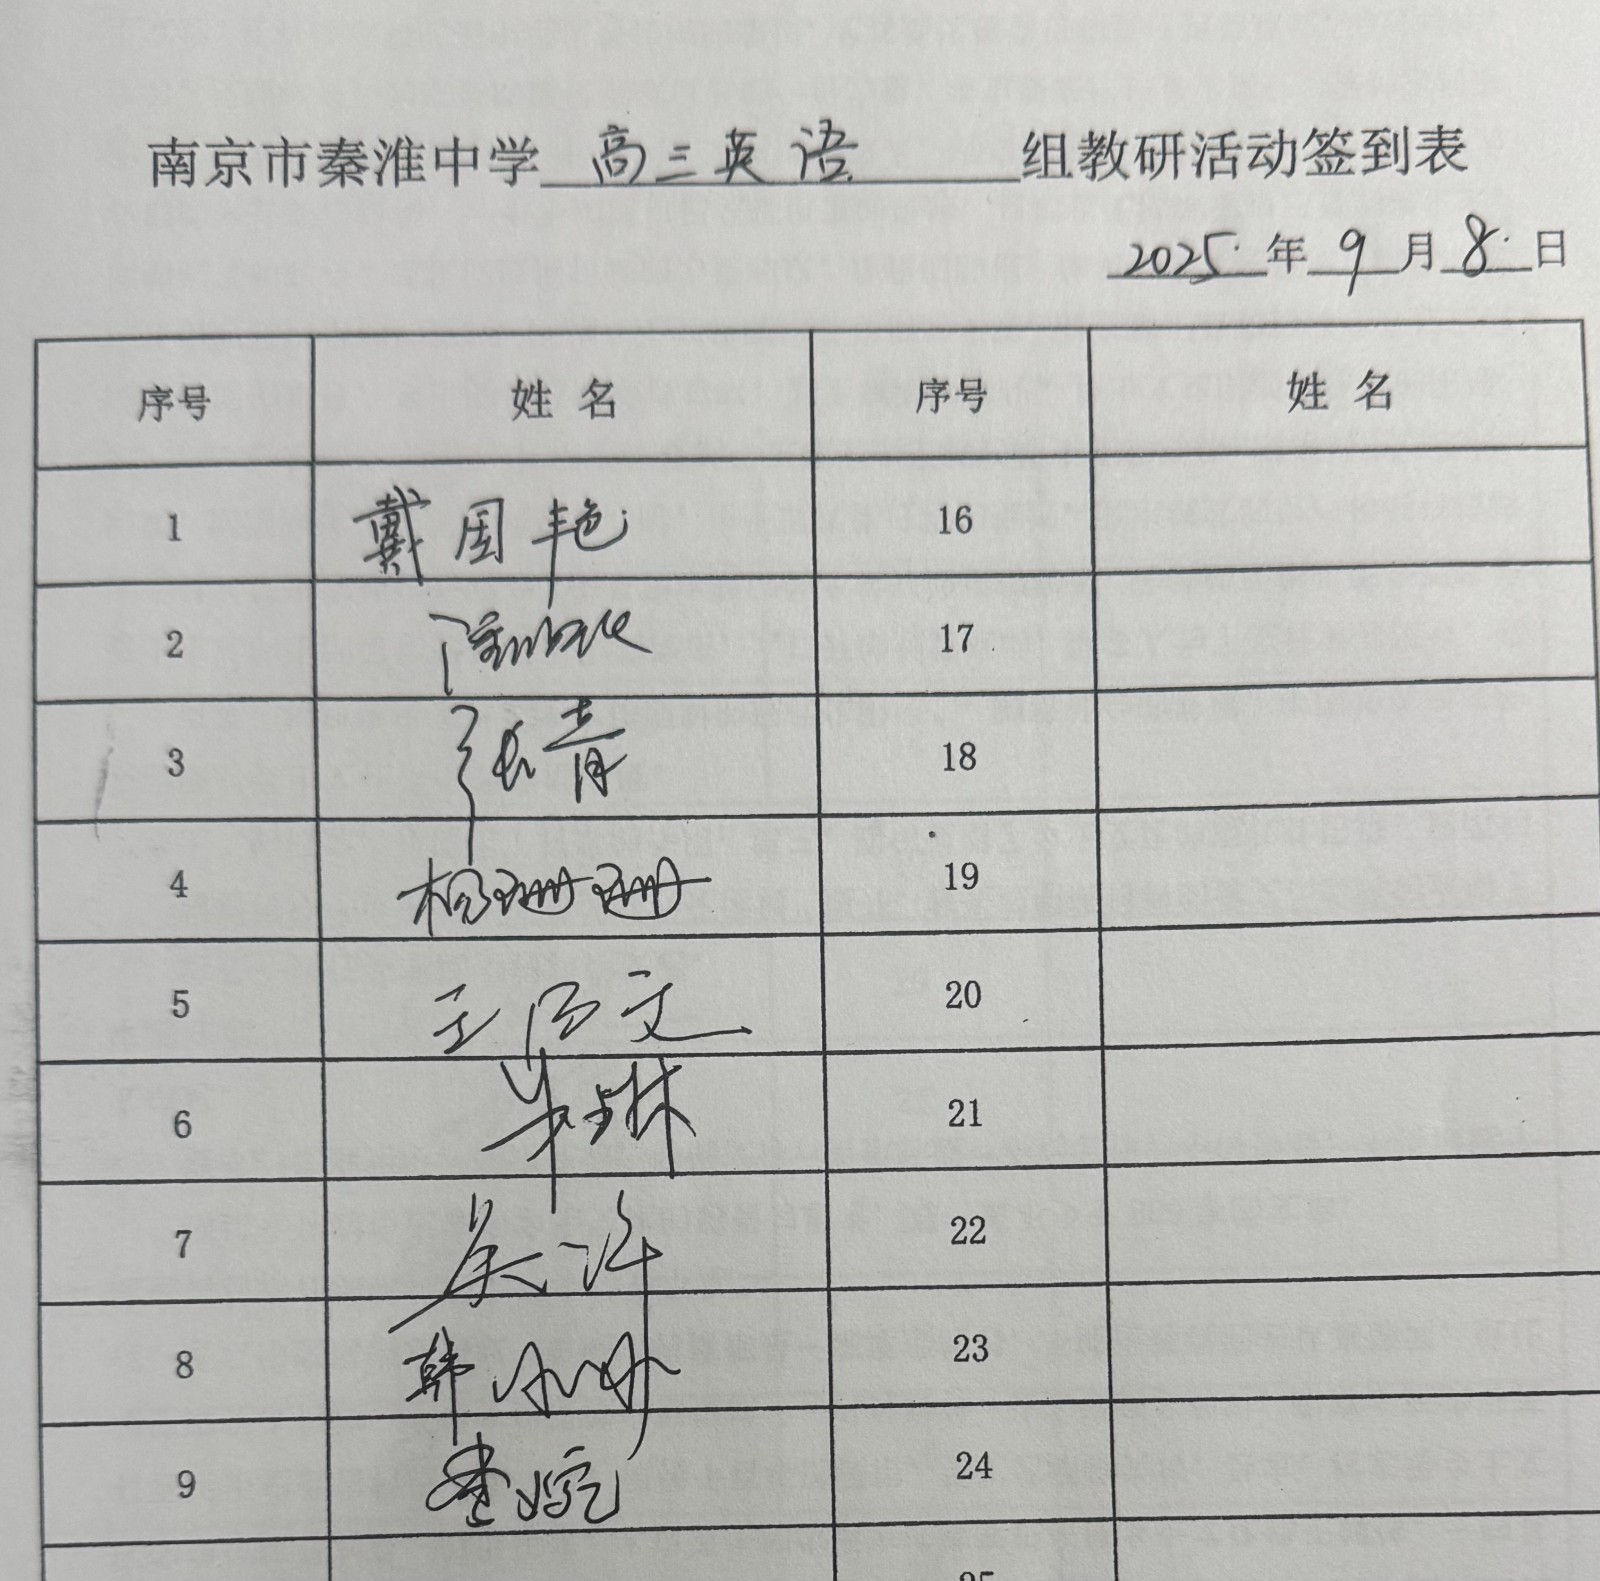 南京市秦淮中学 高三英语 组教研活动签到表
2025年9月8日
序号 姓名 序号 姓名
1 戴周艳 16
2 17
3 张青 18
4 杨珊珊 19
5 王 文 20
6 朱琳 21
7 吴许 22
8 韩 23
9 婉 24
25